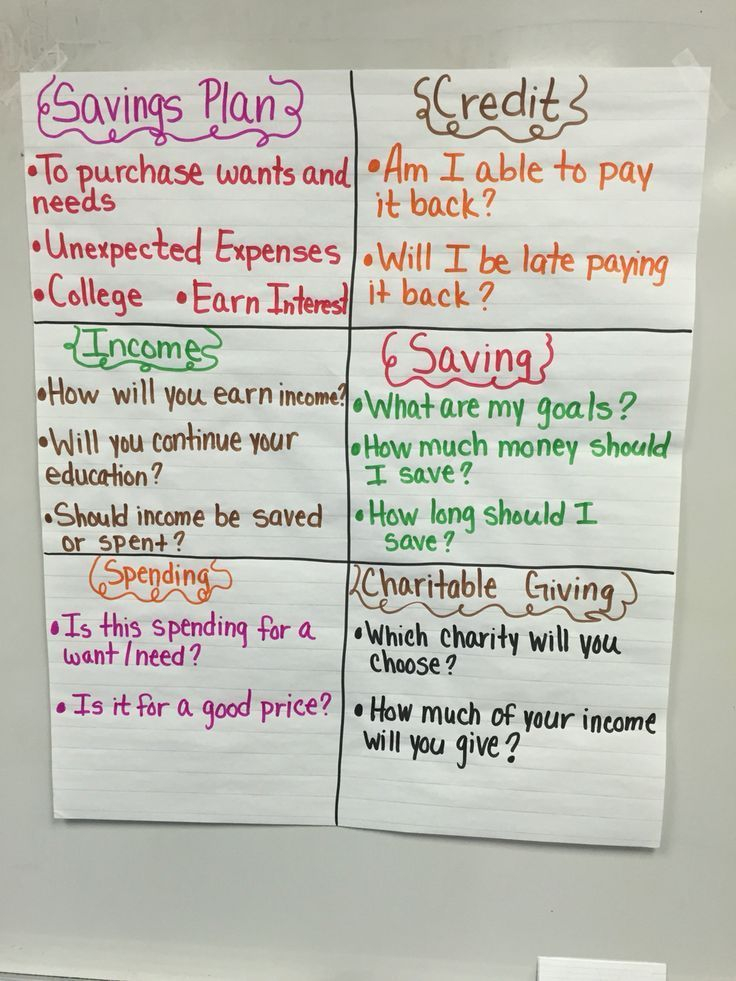 Savings Plan
• To purchase wants and
needs
• Unexpected Expenses
• College • Earn Interest
Credit
• Am I able to pay
it back?
• Will I be late paying
it back?
Income
• How will you earn income?
• Will you continue your
education?
• Should income be saved
or spent?
Saving
• What are my goals?
• How much money should
I save?
• How long should I
save?
Spending
• Is this spending for a
want/need?
• Is it for a good price?
Charitable Giving
• Which charity will you
choose?
• How much of your income
will you give?